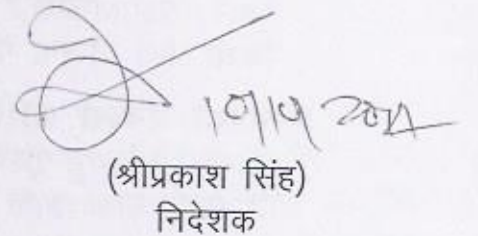 10/10/2014
(श्रीप्रकाश सिंह)
निदेशक